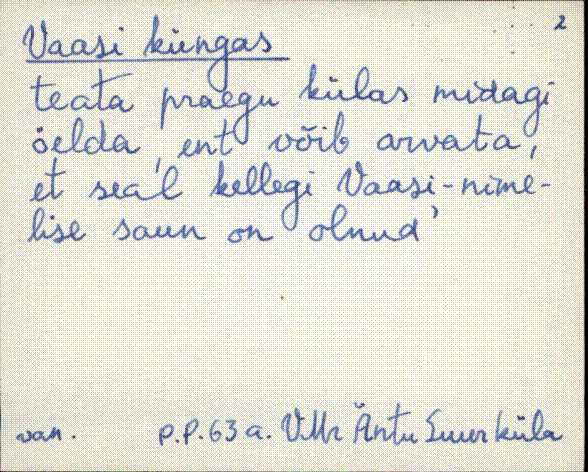 2
Vaasi küngas
teata praegu külas midagi
öelda, ent võib arvata,
et seal kellegi Vaasi-nime-
lise saun on olnud’
van. p.p. 63 a. VMr Äntu Suurküla